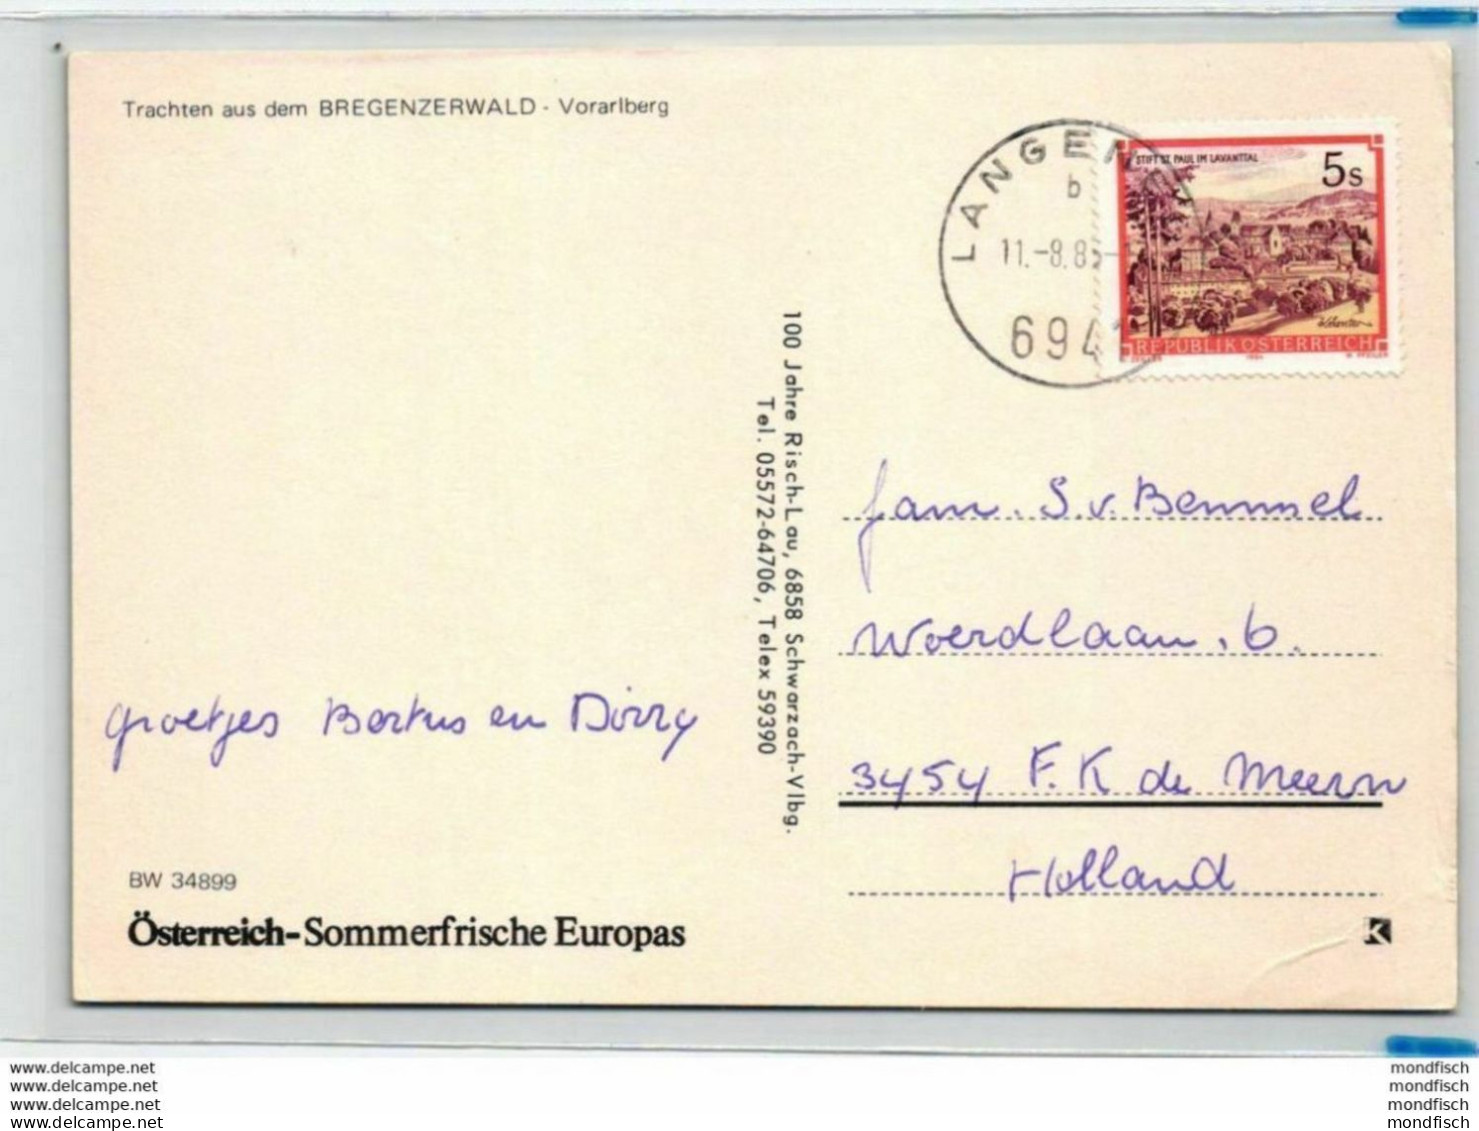 Trachten aus dem BREGENZERWALD - Vorarlberg
LANGEN
b
11.-8.85-
6941
STIFT ST. PAUL IM LAVANTTAL
5s
REPUBLIK ÖSTERREICH
1984
W. PFEILER
100 Jahre Risch-Lau, 6858 Schwarzach-Vlbg.
Tel. 05572-64706, Telex 59390
fam. S.v. Bemmel
Woerdlaan. 6.
3454 F.K de Meern
Holland
groetjes Bertus en Dirry
BW 34899
Österreich-Sommerfrische Europas
K
www.delcampe.net
www.delcampe.net
www.delcampe.net
www.delcampe.net
mondfisch
mondfisch
mondfisch
mondfisch